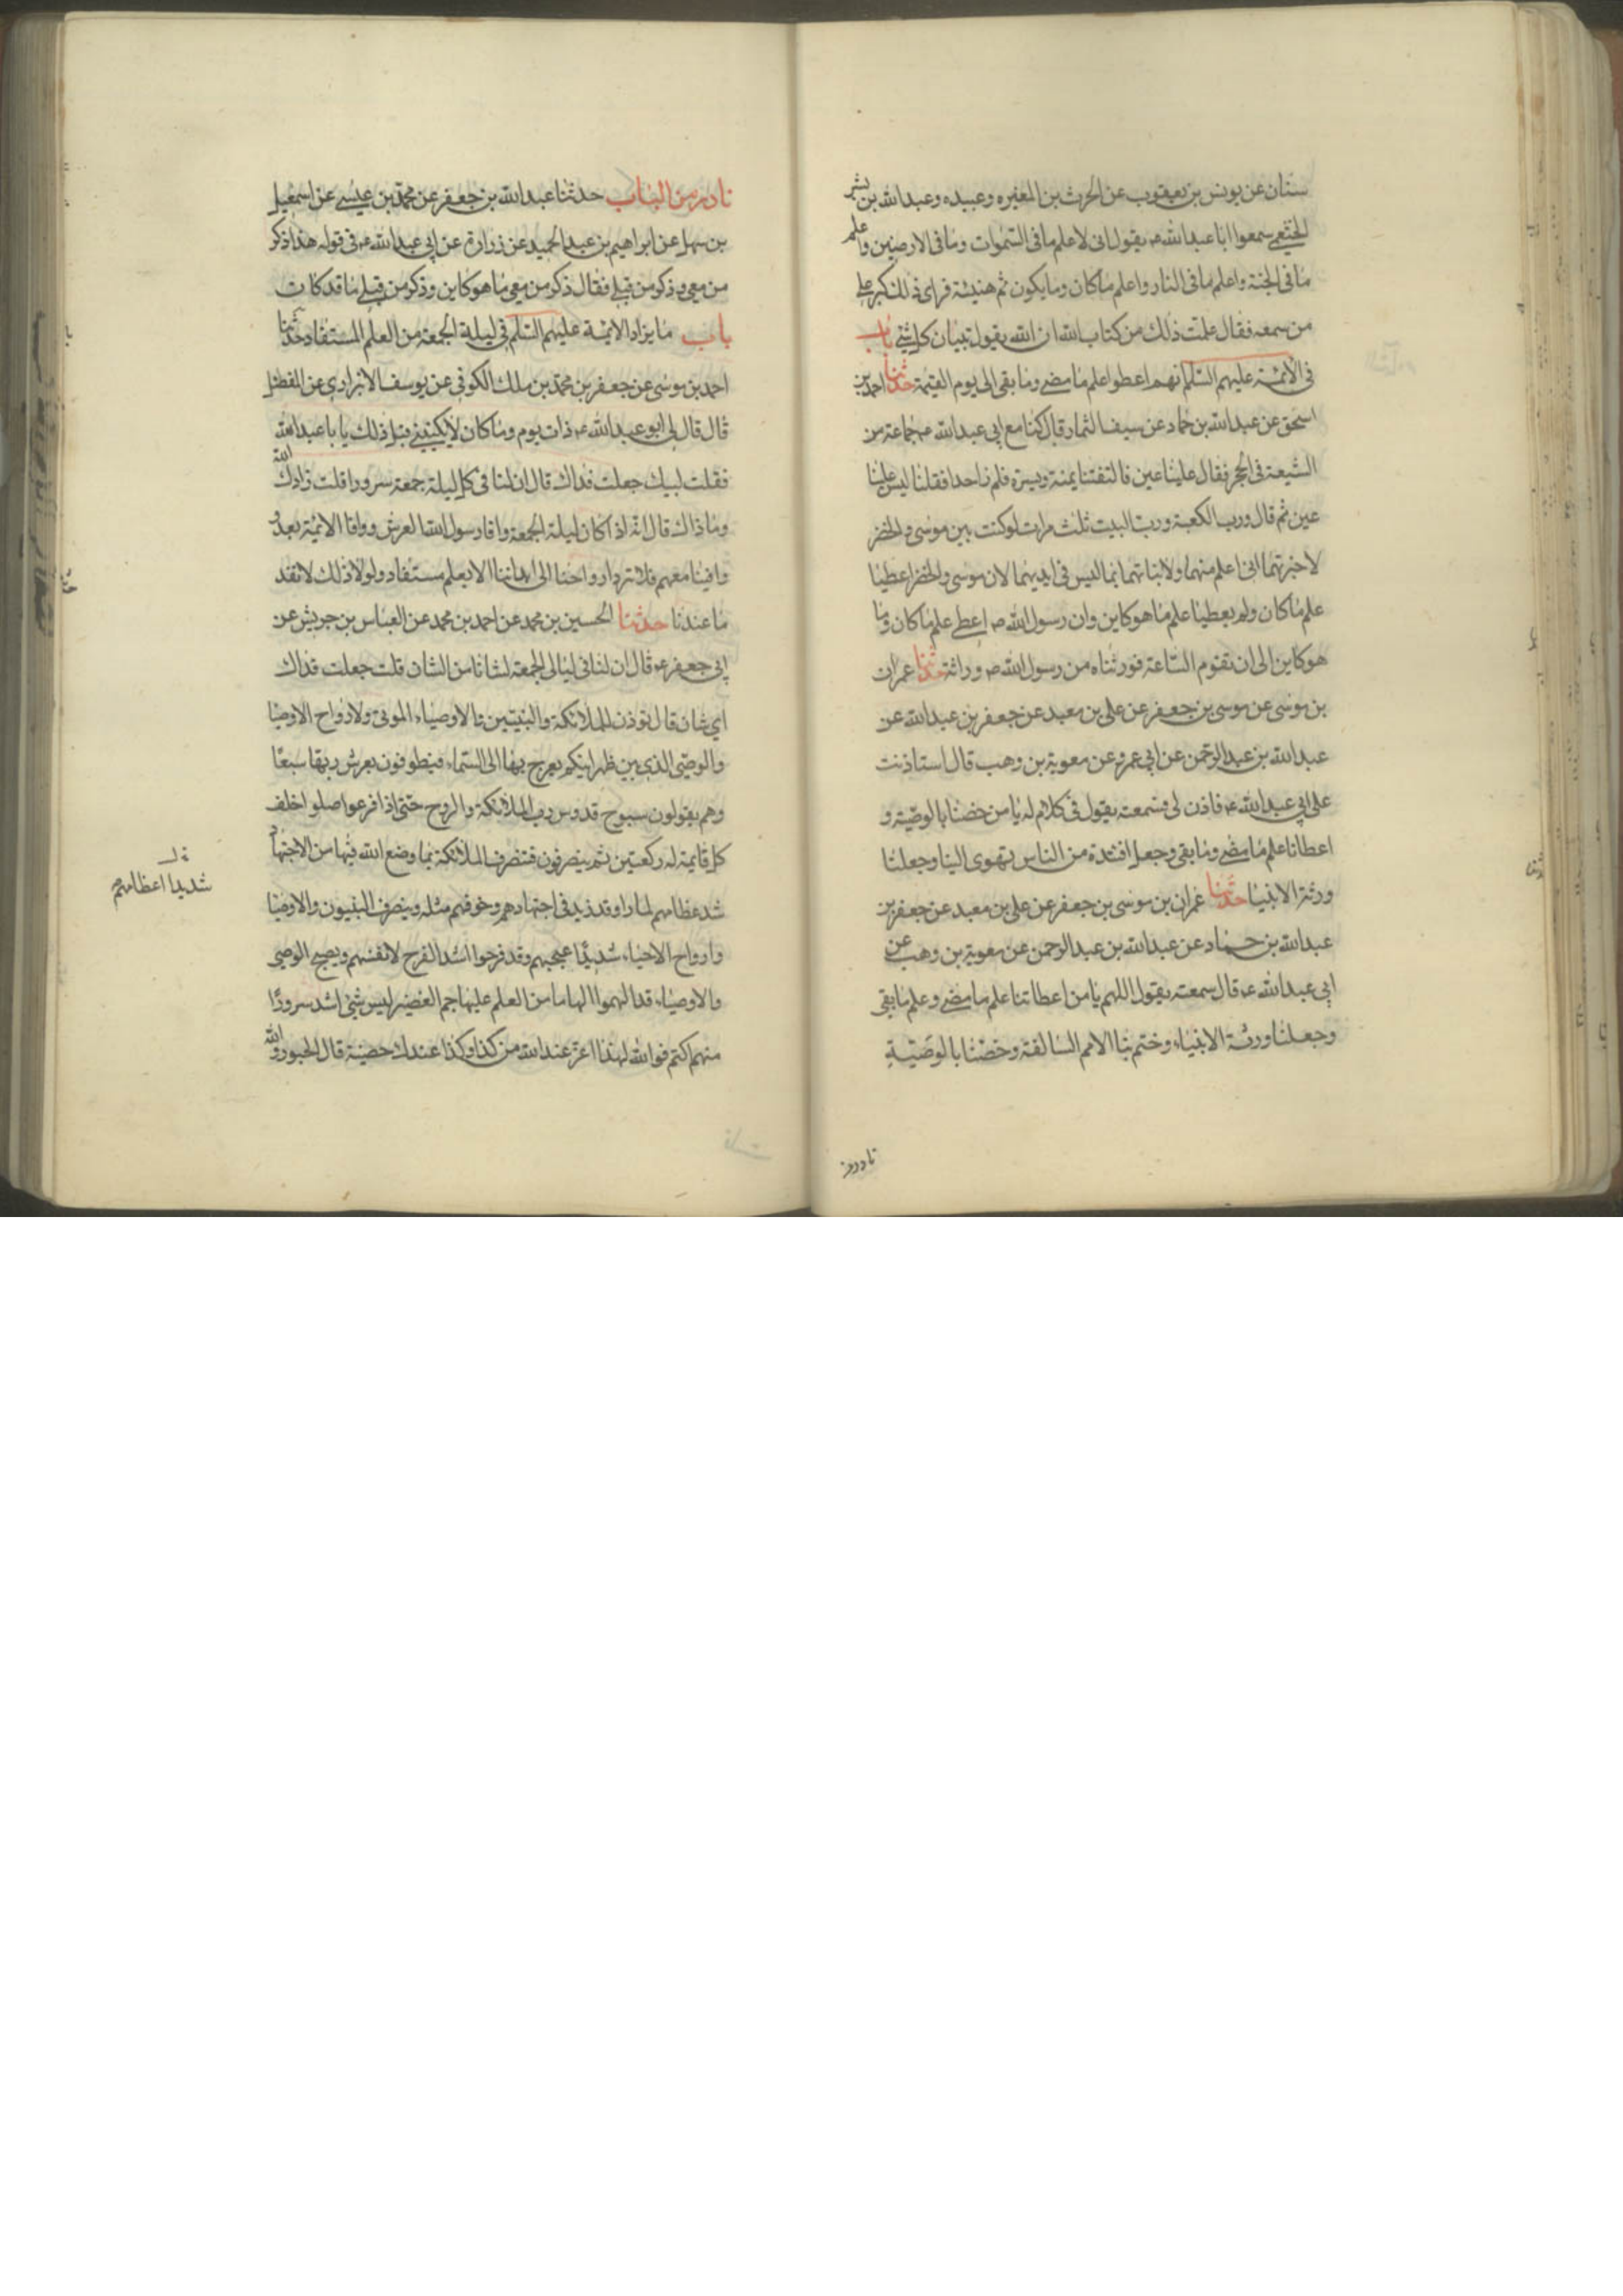 سنان عن يونس بن يعقوب عن الحرث بن المغيره وعبيده وعبدالله بن بشر
الخثعمي سمعوا اباعبدالله ع يقول انى لاعلم ما فى السموات وما فى الارضين واعلم
ما فى الجنة واعلم ما فى النار واعلم ما كان وما يكون ثم هنيئة فراى ذلك كبر على
من سمعه فقال علمت ذلك من كتاب الله ان الله يقول تبيان كل شئ باب
فى الائمة عليهم السلم انهم اعطوا علم ما مضى وما بقى الى يوم القيمة حدثنا احمد بن
اسحق عن عبدالله بن حماد عن سيف التمار قال كنا مع ابى عبدالله ع جماعة من
الشيعة فى الحجر فقال علينا عين فالتفتنا يمنة ويسرة فلم نر احدا فقلنا ليس علينا
عين ثم قال ورب الكعبة ورب البيت ثلث مرات لو كنت بين موسى والخضر
لاخبرتهما انى اعلم منهما ولانباتهما بما ليس فى ايديهما لان موسى والخضر اعطيا
علم ما كان ولم يعطيا علم ما هو كاين وان رسول الله ص اعطى علم ما كان وما
هو كاين الى ان تقوم الساعة فورثناه من رسول الله ص وراثة حدثنا عمران
بن موسى عن موسى بن جعفر عن على بن معبد عن جعفر بن عبدالله عن
عبدالله بن عبدالرحمن عن ابى عمرو عن معوية بن وهب قال استاذنت
على ابى عبدالله ع فاذن لى فسمعته يقول فى كلام له يا من خصنا بالوصية و
اعطانا علم ما مضى وما بقى وجعل افئدة من الناس تهوى الينا وجعلنا
ورثة الانبيا حدثنا عمران بن موسى بن جعفر عن على بن معبد عن جعفر بن
عبدالله بن حماد عن عبدالله بن عبدالرحمن عن معوية بن وهب عن
ابى عبدالله ع قال سمعته يقول اللهم يا من اعطانا علم ما مضى وعلم ما بقى
وجعلنا ورثة الانبياء وختم بنا الامم السالفة وخصنا بالوصية
نادر من الباب حدثنا عبدالله بن جعفر عن محمد بن عيسى عن اسمعيل
بن سهل عن ابراهيم بن عبدالحميد عن زرارة عن ابى عبدالله ع فى قوله هذا ذكر
من معى وذكر من قبلى فقال ذكر من معى ما هو كاين وذكر من قبلى ما قد كان
باب ما يزاد الائمة عليهم السلم فى ليلة الجمعة من العلم المستفاد حدثنا
احمد بن موسى عن جعفر بن محمد بن ملك الكوفى عن يوسف الابزارى عن المفضل
قال قال لى ابو عبدالله ع ذات يوم وما كان لا يكنينى قبل ذلك يا باعبدالله
فقلت لبيك جعلت فداك قال ان لنا فى كل ليلة جمعة سرورا قلت زادك الله
وما ذاك قال انه اذا كان ليلة الجمعة وافا رسول الله العرش ووافا الائمة بعده
وافينا معهم فلا ترد ارواحنا الى ابداننا الا بعلم مستفاد ولولا ذلك لانفد
ما عندنا حدثنا الحسين بن محمد عن احمد بن محمد عن العباس بن جريش عن
ابى جعفر ع قال ان لنا فى ليالى الجمعة لشانا من الشان قلت جعلت فداك
اى شان قال توذن للملائكة والنبيين والاوصياء الموتى ولارواح الاوصيا
والوصى الذى بين ظهرانيكم يعرج بها الى السماء فيطوفون بعرش ربها سبعا
وهم يقولون سبوح قدوس رب الملائكة والروح حتى اذا فرغوا صلوا خلف
كل قايمة له ركعتين ثم ينصرفون فتنصرف الملائكة بما وضع الله فيها من الاجتهاد
شد عظامهم لما راوا وقد زيد فى اجتهادهم وخوفهم مثله وينصرف النبيون والاوصيا
وارواح الاحياء شديدا عجبهم وقد فرحوا اشد الفرح لانفسهم ويصبح الوصى
والاوصياء قد الهموا الهاما من العلم علما جم الغفير ليس شئ اشد سرورا
منهم اكتم فوالله لهذا اعز عند الله من كذا وكذا عندك حصنة قال لى محبور والله
شديدا اعظامهم
نادر من